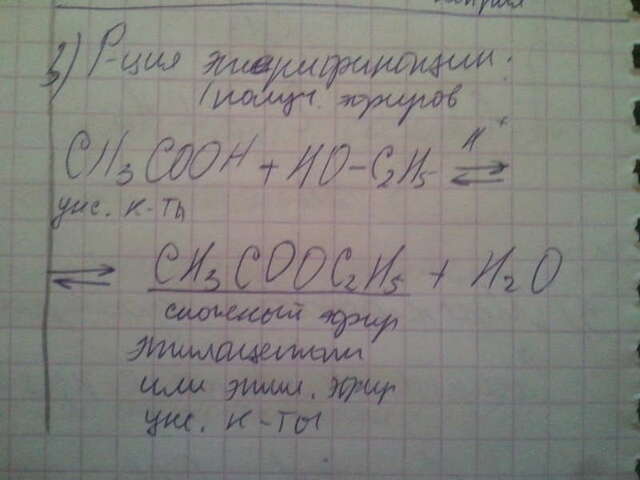 3) Р-ция этерификации:
/получ. эфиров
CH₃COOH + HO-C₂H₅ ⇌ H⁺
укс. к-ты
⇌ CH₃COOC₂H₅ + H₂O
сложный эфир
этилацетат
или этил. эфир
укс. к-ты